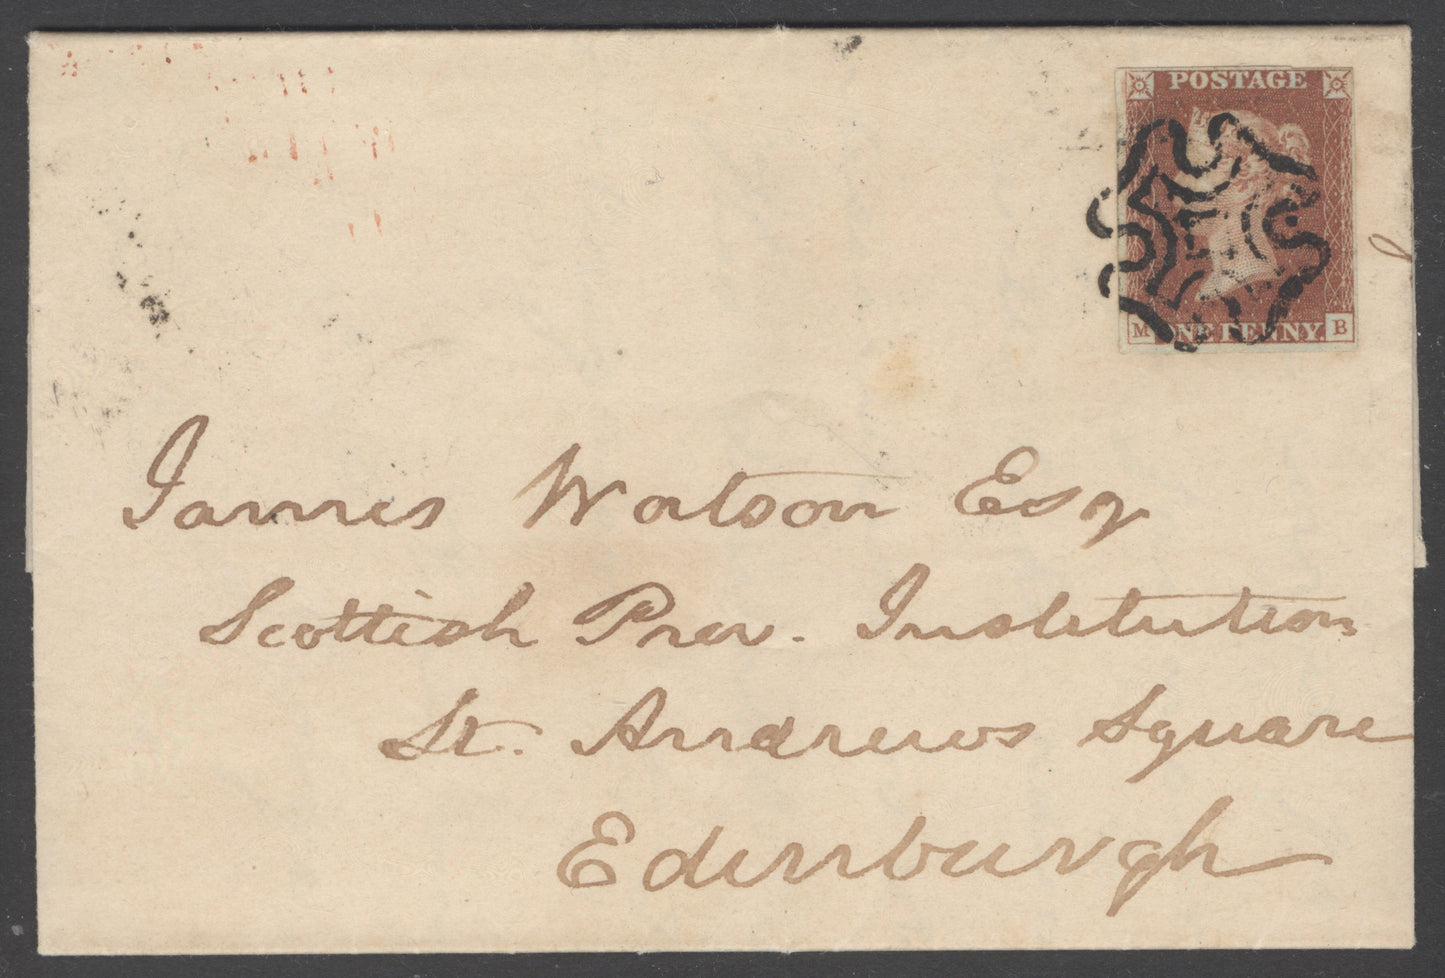 POSTAGE
M ONE PENNY. B
James Watson Esq
Scottish Prov. Institution
St. Andrews Square
Edinburgh